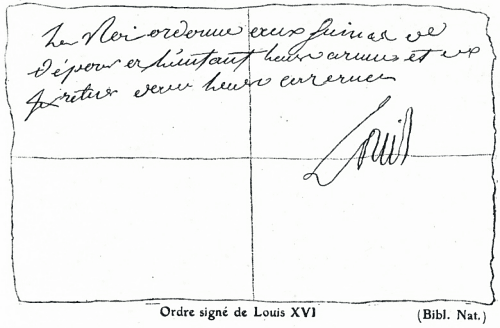 Le Roi ordonne aux Suisses de
déposer a l'instant leurs armes et de
se retirer dans leurs casernes
Louis
Ordre signé de Louis XVI
(Bibl. Nat.)